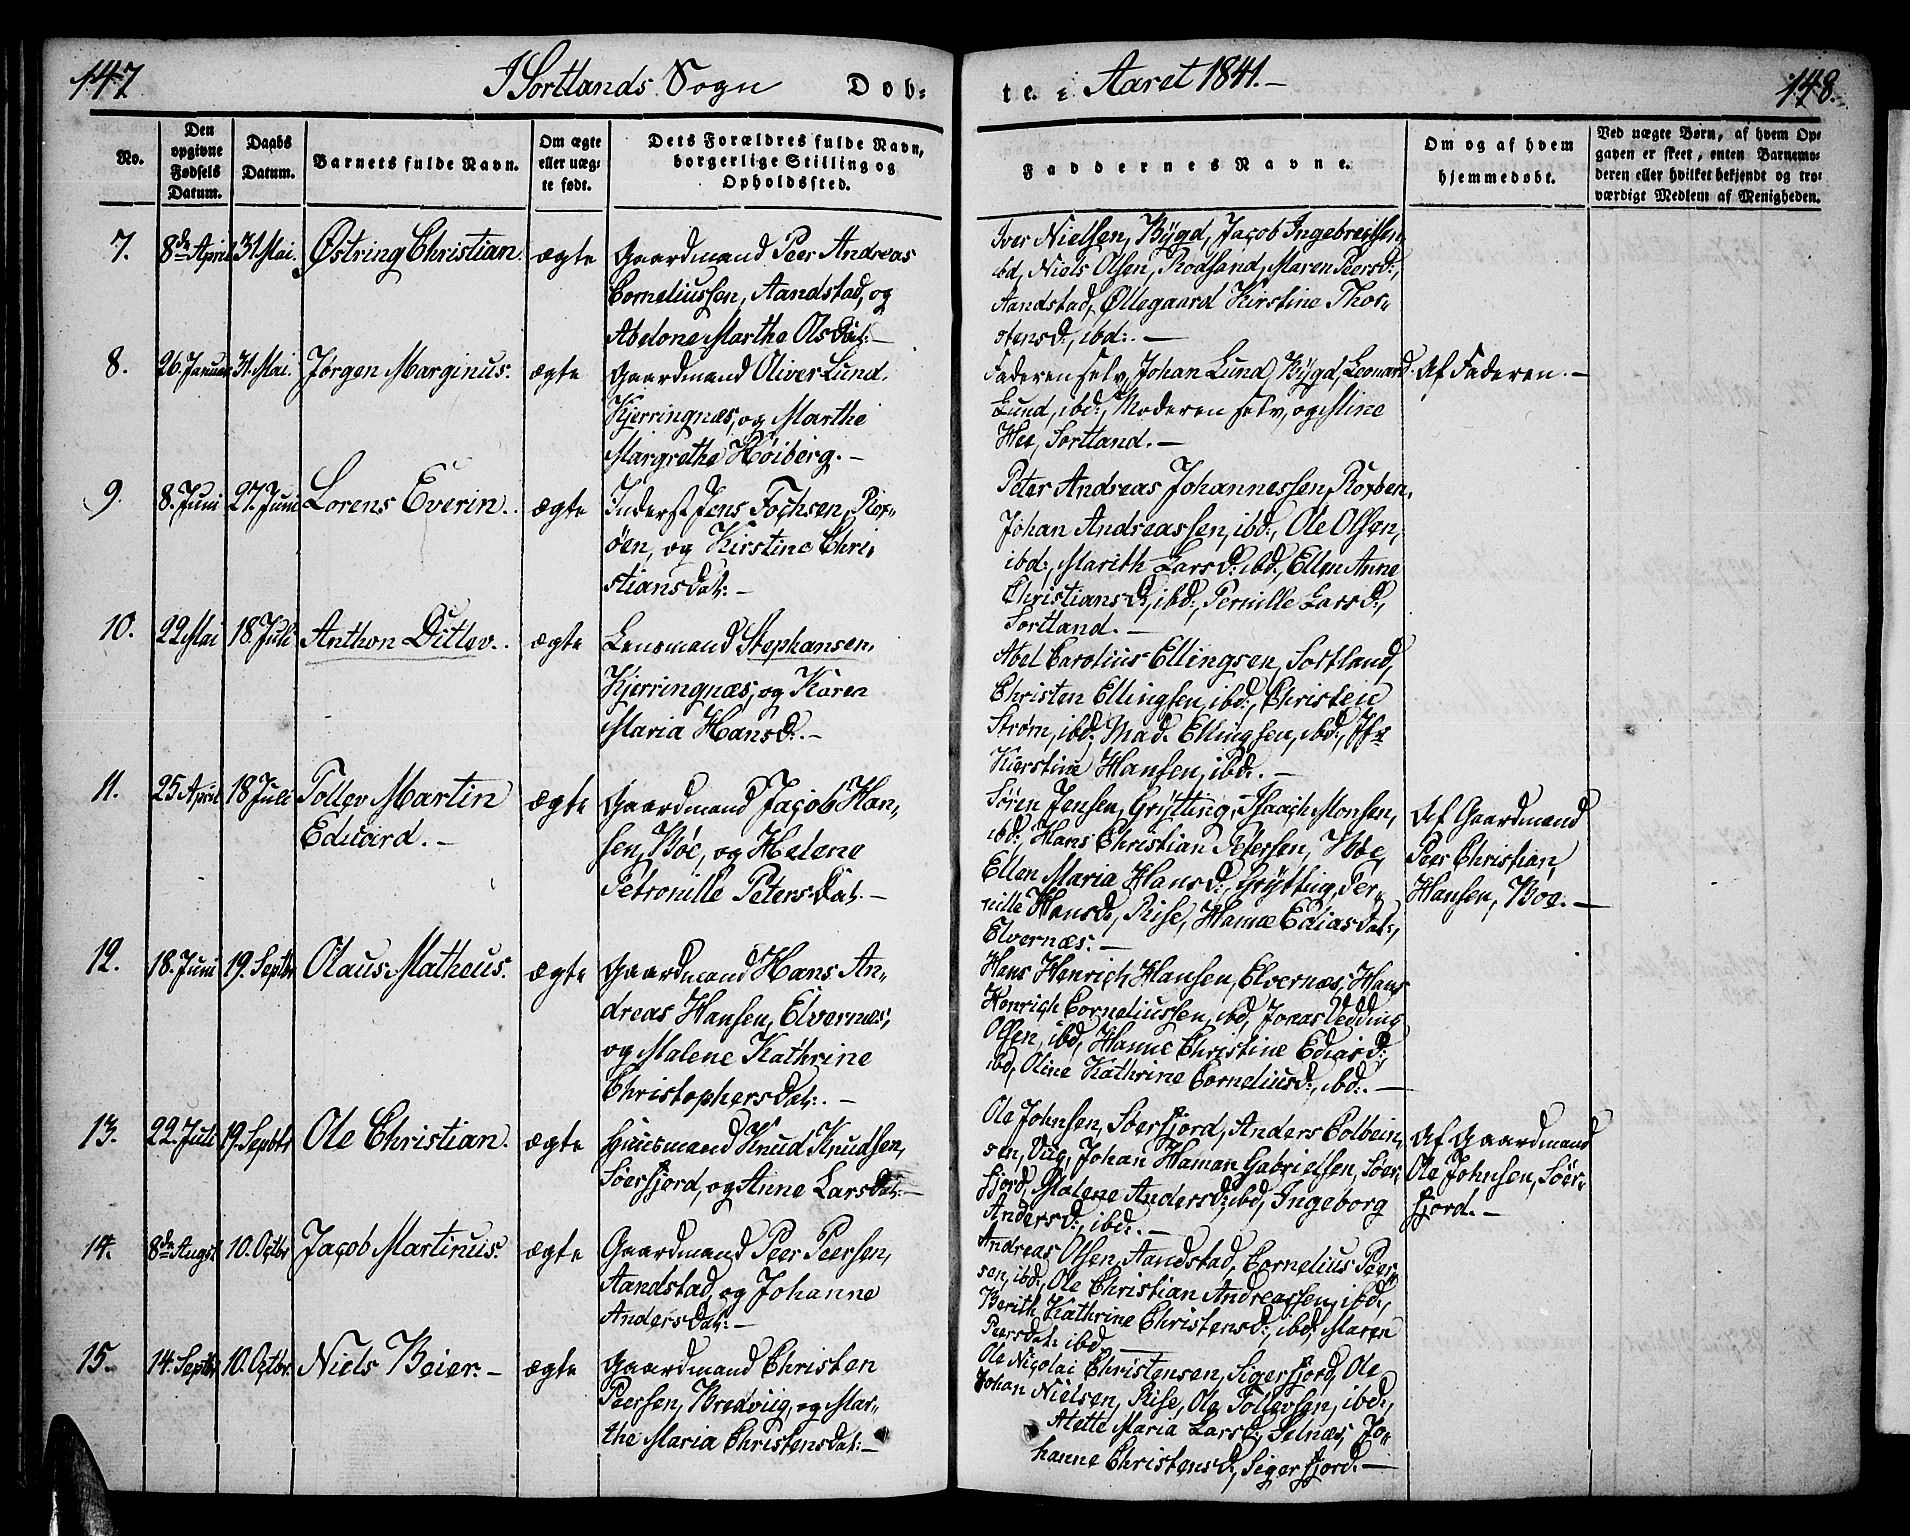 147
I Sortlands Sogn Døb-
te i Aaret 1841.-
148.
No.
Den opgivne Fødsels Datum.
Daabs Datum.
Barnets fulde Navn.
Om ægte eller uæg-
te født.
Dets Forældres fulde Navn,
borgerlige Stilling og
Opholdssted.
Faddernes Navne.
Om og af hvem
hjemmedøbt.
Ved uægte Børn, af hvem Op-
gaven er skeet, enten Barnemo-
deren eller hvilket bekjendt og tro-
værdigt Medlem af Menigheden.
7. 8de April 31 Mai. Østring Christian. ægte Gaardmand Peer Andreas
Corneliussen, Aandstad, og
Abelone Marthe Olsdat:-
Iver Nielsen, Bÿgd, Jacob Ingebretsen,
ibd, Niels Olsen, Rodsand, Maren Peersd:,
Aandstad, Ollegaard Kirstine Thor-
stensd:, ibd:. -
8. 26. Januar 31. Mai. Jørgen Marginus. ægte Gaardmand Oliver Lund,
Kjerringnæs, og Marthe
Margrethe Høiberg. -
Faderen selv, Johan Lund, Bÿgd, Leonard
Lund, ibd:, Moderen selv, og Mine
Hee, Sortland. -
Af Faderen. -
9. 8. Juni 27. Juni Lorens Everin. ægte Inderst Jens Fochsen, Rox-
øen, og Kirstine Chri-
stiansdat: -
Peter Andreas Johannessen, Roxøen,
Johan Andreassen, ibd:, Ole Olsen,
ibd:, Marith Larsd: ibd:, Ellen Anne
Christiansd:, ibd:, Pernille Larsd:,
Sortland. -
10. 22 Mai 18. Juli Anthon Ditlev. ægte Lensmand Stephansen,
Kjerringnæs, og Karen
Maria Hansd:. -
Abel Carolius Ellingsen, Sortland,
Christen Ellingsen, ibd:, Christen
Strøm, ibd:, Mad. Ellingsen, ibd:, Jfr
Kierstine Hansen, ibd:. -
11. 25 April 18 Juli Tollev Martin
Edvard. -
ægte Gaardmand Jacob Han-
sen, Bøe, og Helene
Petronille Petersdat. -
Søren Jensen, Grÿtting, Isaach Monsen,
ibd:, Hans Christian Petersen, Bøe,
Ellen Maria Hansd:, Grÿtting, Per-
nille Hansd:, Rise, Hanne Ediasdat:,
Elvernæs. -
Af Gaardmand
Peer Christian
Hansen, Boe. -
12. 18. Juni 19. Septbr Olaus Matheus. ægte Gaardmand Hans An-
dreas Hansen, Elvernæs,
og Malene Kathrine
Christophersdat:. -
Hans Henrich Hansen, Elvernæs, Hans
Henrich Corneliussen, ibd, Joneas Vedding
Olsen, ibd, Hanne Christine Ediasd:,
ibd, Oline Kathrine Corneliusd:, ibd:. -
13. 22. Juli 19. Septbr Ole Christian. ægte Huusmand Knud Knudsen,
Søerfjord, og Anne Larsdat: -
Ole Johnsen, Søerfjord, Anders Colbein-
sen, Vug, Johan Haman Gabrielsen, Søer-
fjord, Malene Andersd: ibd, Ingeborg
Andersd:, ibd:. -
Af Gaardmand
Ole Johnsen, Søer-
fjord. -
14. 8de Augst 10. Octbr Jacob Martinus. ægte Gaardmand Peer Peersen,
Aandstad, og Johanne
Andersdat: -
Andreas Olsen, Aandstad, Cornelius Peer-
sen, ibd:, Ole Christian Andreassen, ibd:,
Berith Kathrine Christensd:, ibd, Maren
Peersdat: ibd. -
15. 14. Septbr 10. Octbr. Niels Beier. - ægte Gaardmand Christen
Peersen, Bredviig, og Mar-
the Maria Christensdat: -
Ole Nicolai Christensen, Sigerfjord, Ole
Johan Nielsen, Rise, Ole Tollevsen, ibd:,
Atette Maria Larsd:, Selnæs, Jo-
hanne Christensd:, Sigerfjord. -